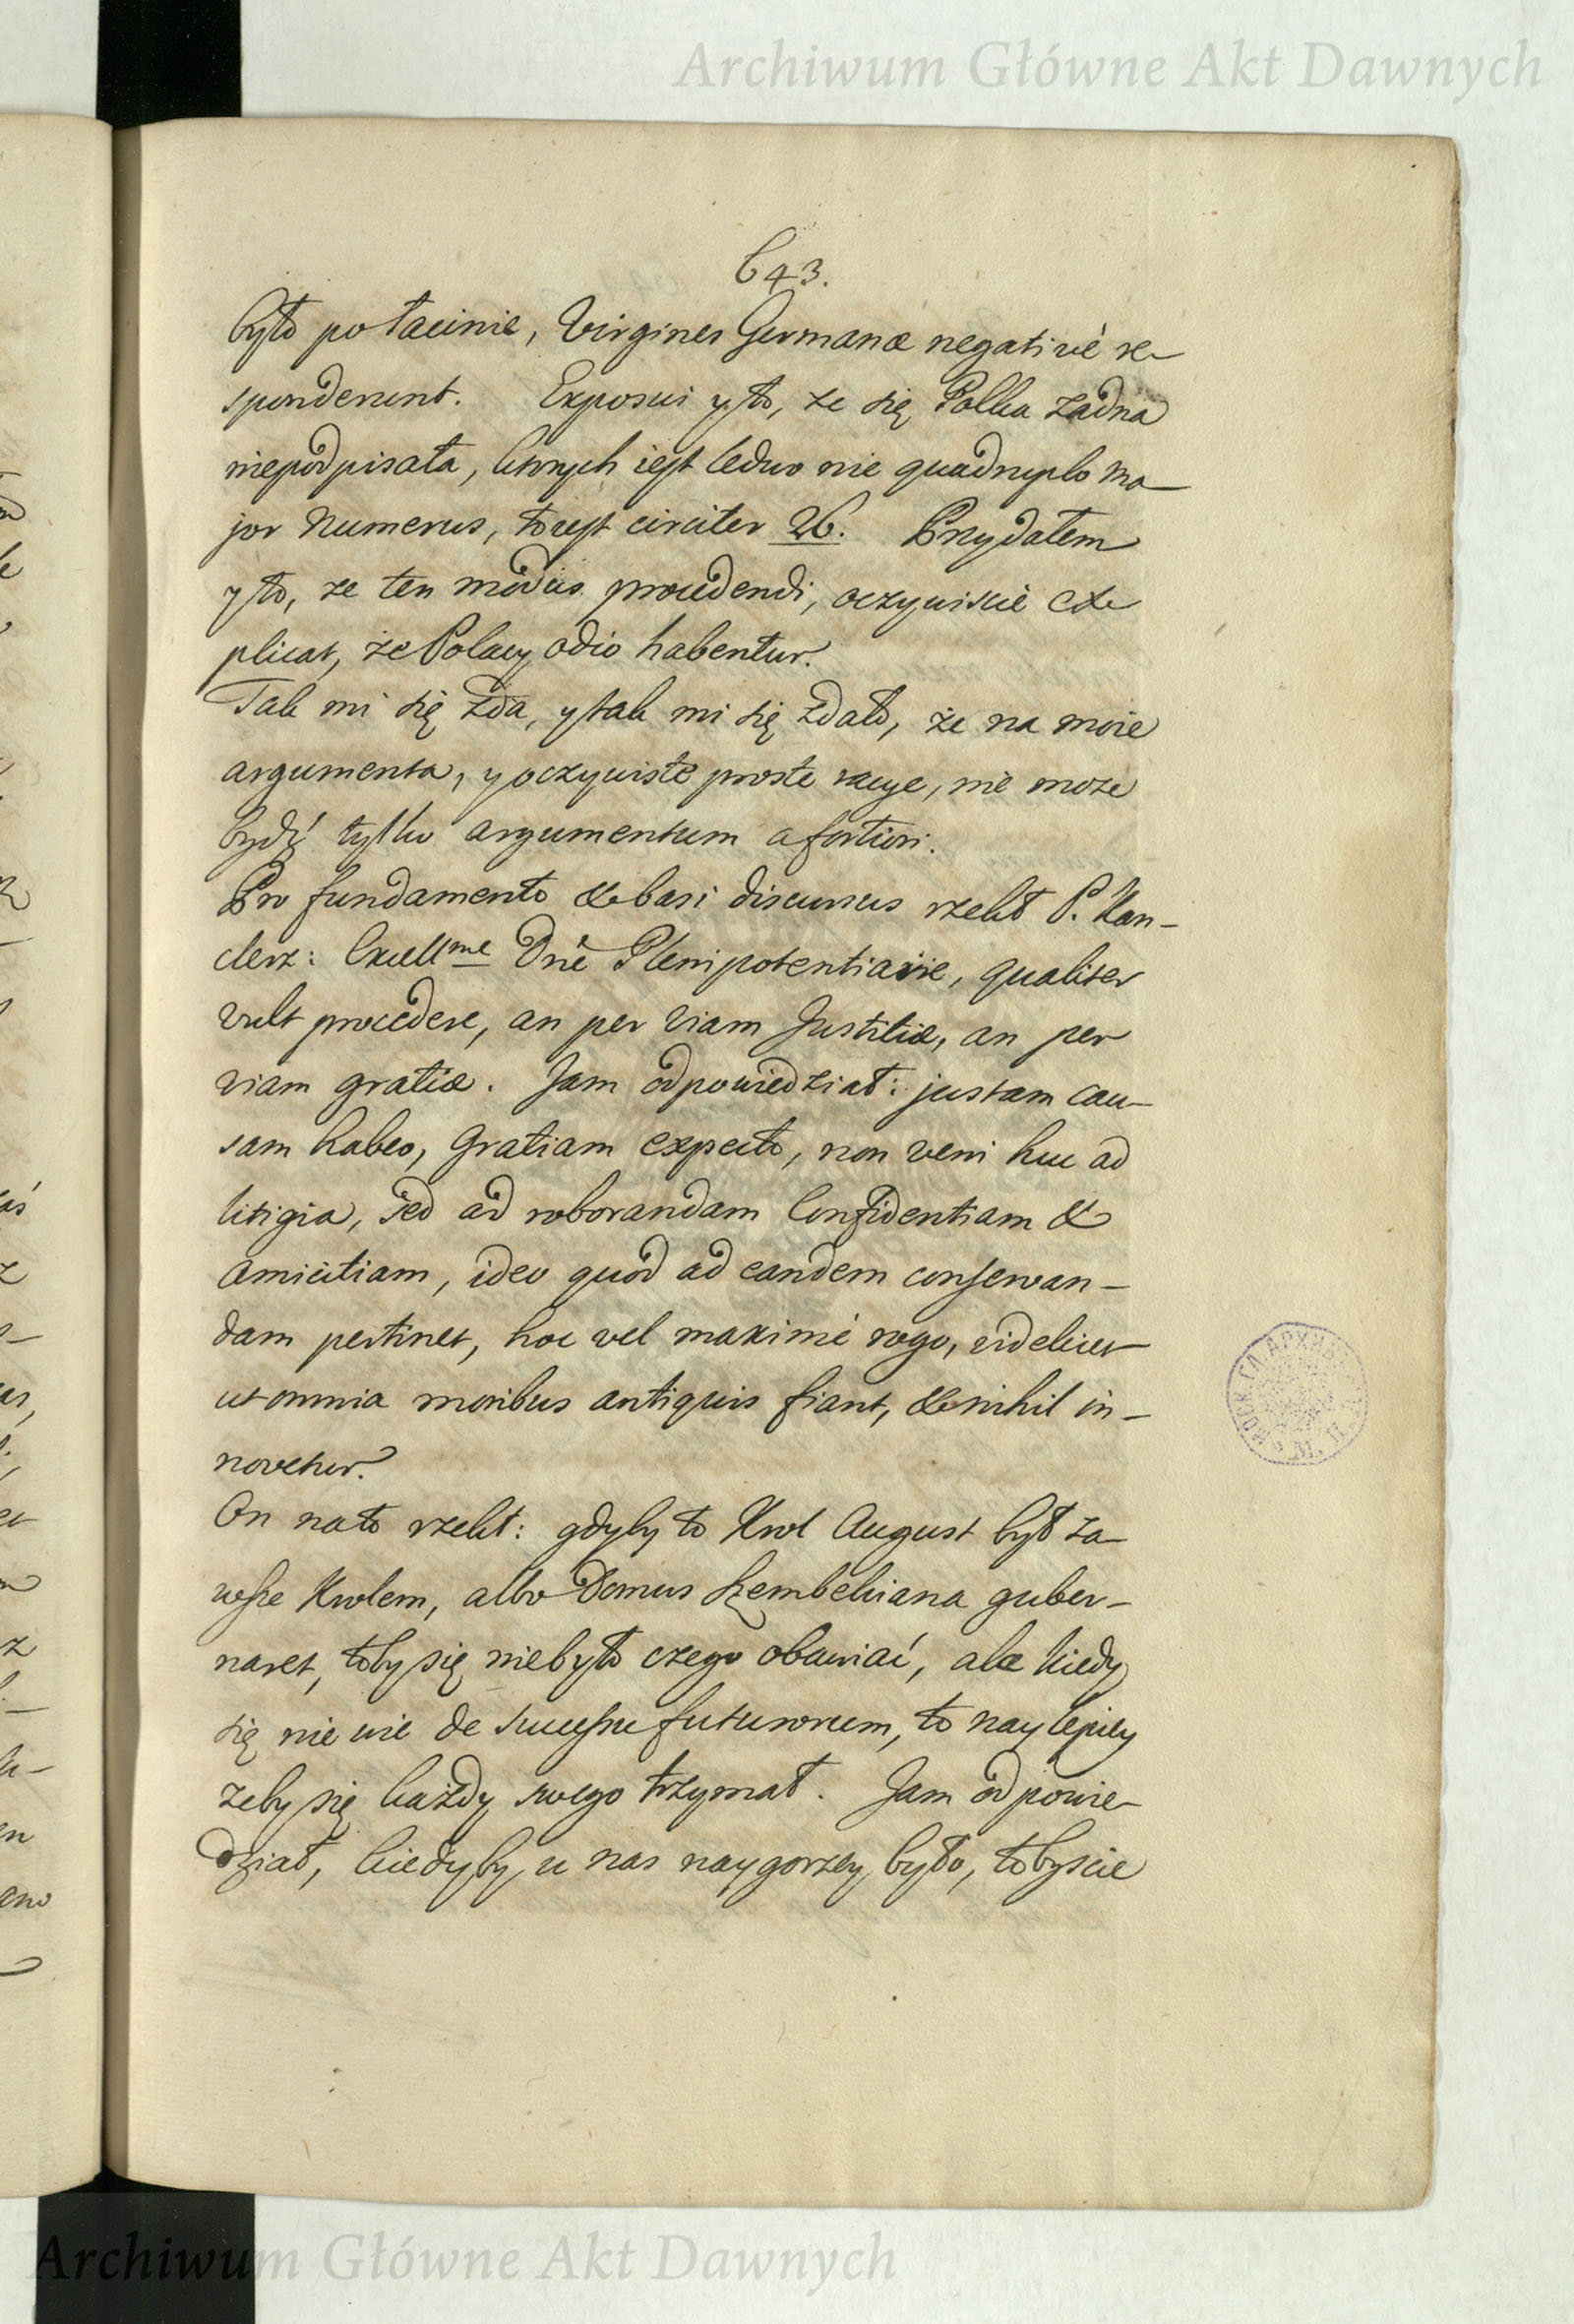 Archiwum Główne Akt Dawnych
643.
było po łacinie, Virgines Germanæ negativè re-
sponderunt. Exposui y to, że się Polka żadna
niepodpisała, ktorych iest ledwo nie quadruplo ma-
jor numerus, to iest circiter 26. Przydałem
y to, że ten modus procedendi, oczywiscie ex-
plicat, że Polacy odio habentur.
Tak mi się zda, y tak mi się zdało, że na moie
argumenta, y oczywiste proste racye, nie może
bydź tylko argumentum a fortiori.
Pro fundamento & basi discursus rzekł P. Kan-
clerz: Excellme Dnè Plenipotentiarie, qualiter
vult procedere, an per viam Justitiæ, an per
viam gratiæ. Jam odpowiedział: justam cau-
sam habeo, Gratiam expecto, non veni huc ad
litigia, sed ad roborandam Confidentiam &
Amicitiam, ideo quòd ad eandem conservan-
dam pertinet, hoc vel maximè rogo, videlicet
ut omnia moribus antiquis fiant, & nihil in-
novetur.
On na to rzekł: gdyby to Krol August był za-
wsze Krolem, albo Domus Szembekiana guber-
naret, toby się niebyło czego obawiać, ale kiedy
się nie wie de successu futurorum, to naylepiey
żeby się każdy swego trzymał. Jam odpowie-
dział, kiedyby u nas naygorzey było, tobyscie
Archiwum Główne Akt Dawnych